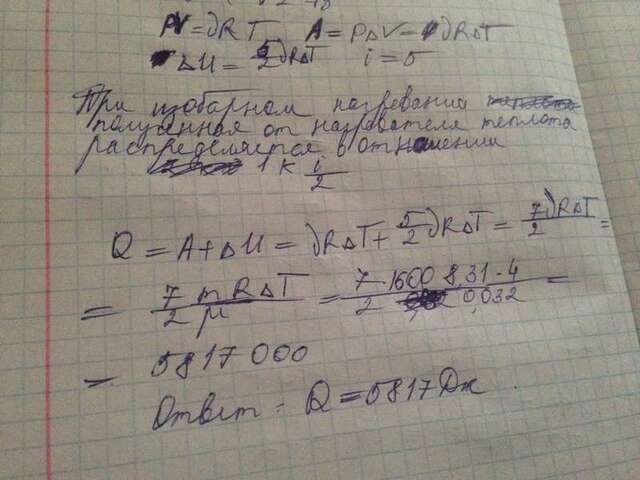 PV = νRT A = PΔV = νRΔT
ΔU = 5/2 νRΔT i = 5
При изобарном нагревании
полученная от нагревателя теплота
распределяется в отношении
1 к i/2
Q = A + ΔU = νRΔT + 5/2 νRΔT = 7/2 νRΔT =
= 7 m RΔT / 2 μ = 7 · 1600 8,31 · 4 / 2 0,032 =
= 5817 000
Ответ: Q = 5817 Дж.